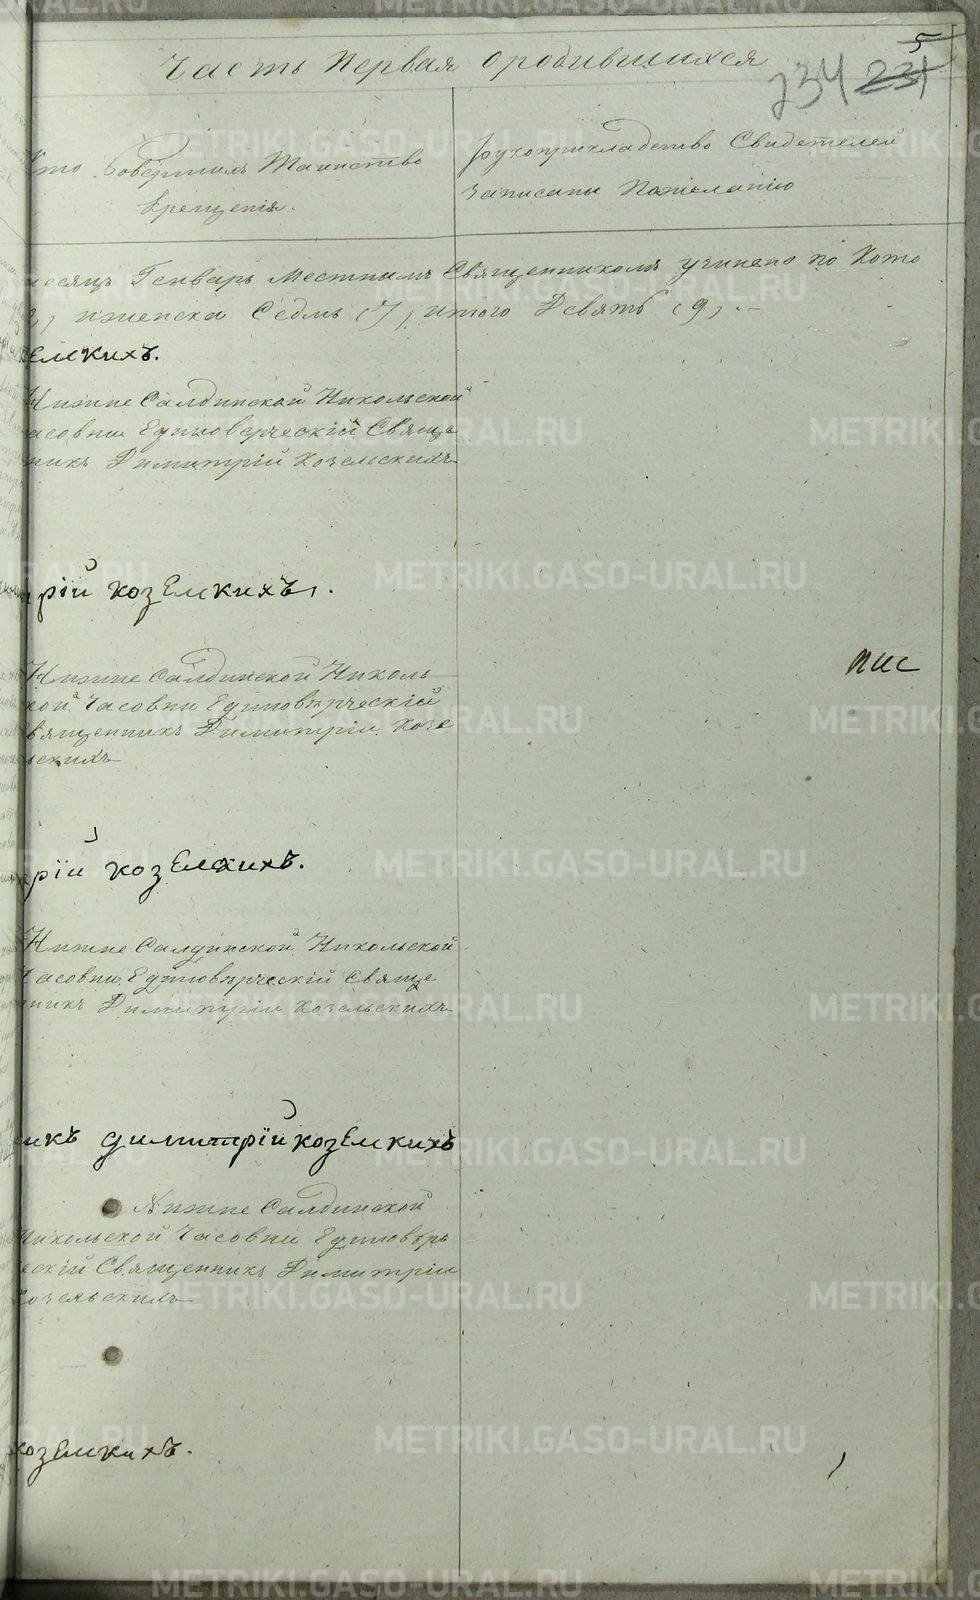 5
Часть Первая о родившихся
234 231
Кто Совершилъ Таинство
Крещенія.
Рукоприкладство Свидетелей
Записаны Пожеланію
месяцъ Генварь Местнымъ Священникомъ учинено по Кото
2, и женска Седмь (7), итого Девять (9).
земкихъ.
Нижне Салдинской Никольской
часовни Единоверческій Свяще
никъ Димитрій Коземскихъ
рій коземкихъ.
Нижне Салдинской Николь
кой Часовни Единоверческій
Священникъ Димитріи Козе
льскихъ
пис
рій коземкихъ.
Нижне Салдинской Никольской
Часовни Единоверческій Свяще
нникъ Димитріи Козельскихъ
икъ димитрій коземкихъ
Нижне Салдинской
Никольской Часовни Единоверъ
ческій Священникъ Димитріи
Козельскихъ
коземкихъ.
METRIKI.GASO-URAL.RU